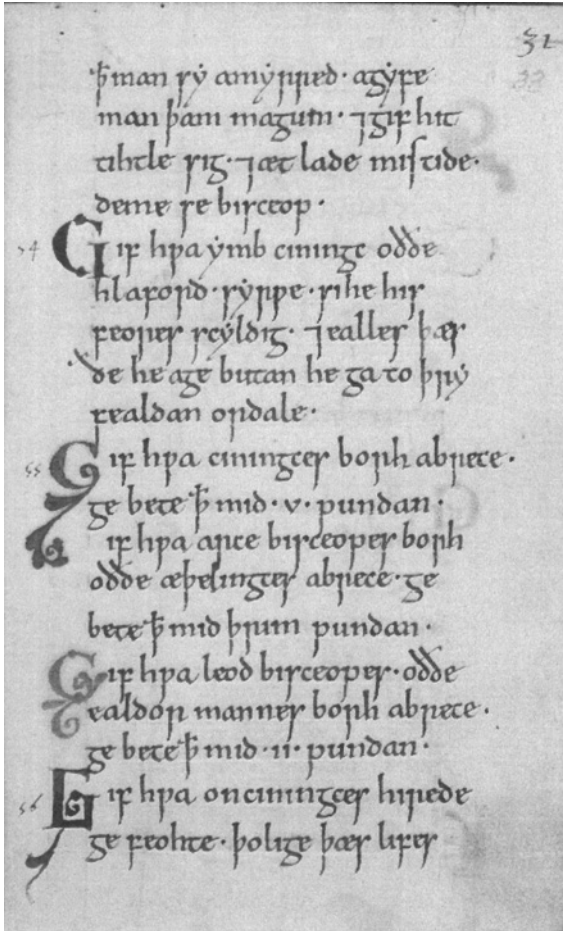 32
33
ꝥman sý amýrred· agýfe
man þam magum· ⁊gif hit
tihtle sig· ⁊æt lade mistide·
deme se bisceop·
54 Gif hƿa ýmb ciningc oððe
hlaford· sýrƿe· sihe his
feores scýldig· ⁊ealles þæs
ðe he age butan he ga to þrý
fealdan ordale·
55 Gif hƿa ciningces borh abrece·
ge bete ꝥ mid· v· pundan·
if hƿa arce bisceopes borh
oððe æþelingces abrece· ge
bete ꝥ mid þrim pundan·
Gif hƿa leod bisceopes· oððe
ealdor mannes borh abrece·
ge bete ꝥ mid· ii· pundan·
56 Gif hƿa onciningces hirede
ge feohte· þolige þæs lifes